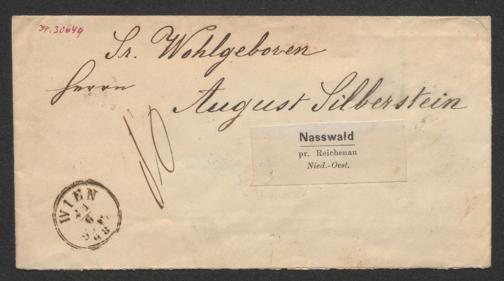 Sr. Wohlgeboren
Herrn
August Silberstein
Nasswald
pr. Reichenau
Nied.-Oest.
WIEN